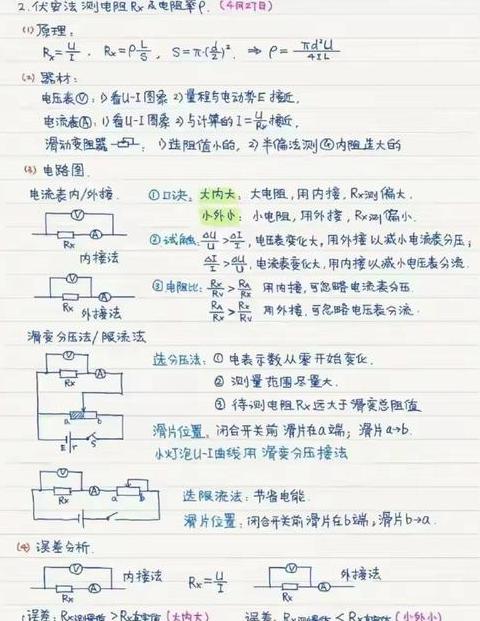 2.伏安法测电阻Rx及电阻率ρ.(4月27日)
(1)原理:
Rx=U/I. Rx=ρL/S, S=π·(d/2)². ⇒ ρ=πd²U/4IL
(2)器材:
电压表Ⓥ:1)看U-I图象 2)量程与电动势E接近,
电流表Ⓐ:1)看U-I图象 2)与计算的I=U/Rx接近,
滑动变阻器:1)选阻值小的, 2)半偏法测Ⓥ内阻选大的
(3)电路图.
电流表内/外接. ①口诀:大内大:大电阻,用内接,Rx测偏大.
小外小:小电阻,用外接,Rx测偏小.
V
Rx A
内接法
②试触:ΔU/U>ΔI/I,电压表变化大,用外接以减小电流表分压;
ΔI/I>ΔU/U,电流表变化大,用内接以减小电压表分流.
V
Rx A
外接法
③电阻比:Rx/Rv>RA/Rx 用内接,可忽略电流表分压
RA/Rx>Rx/Rv 用外接,可忽略电压表分流.
滑变分压法/限流法
V
Rx A
a b
E r S
选分压法:①电表示数从零开始变化.
②测量范围尽量大.
③待测电阻Rx远大于滑变总阻值
滑片位置:闭合开关前滑片在a端;滑片a→b.
小灯泡U-I曲线用滑变分压接法
V
Rx A a b
选限流法:节省电能.
滑片位置:闭合开关前滑片在b端,滑片b→a.
(4)误差分析.
V
Rx A
内接法
Rx=U/I
V
Rx A
外接法
误差:Rx测量值>Rx真实值(大内大) 误差:Rx测量值<Rx真实值(小外小)